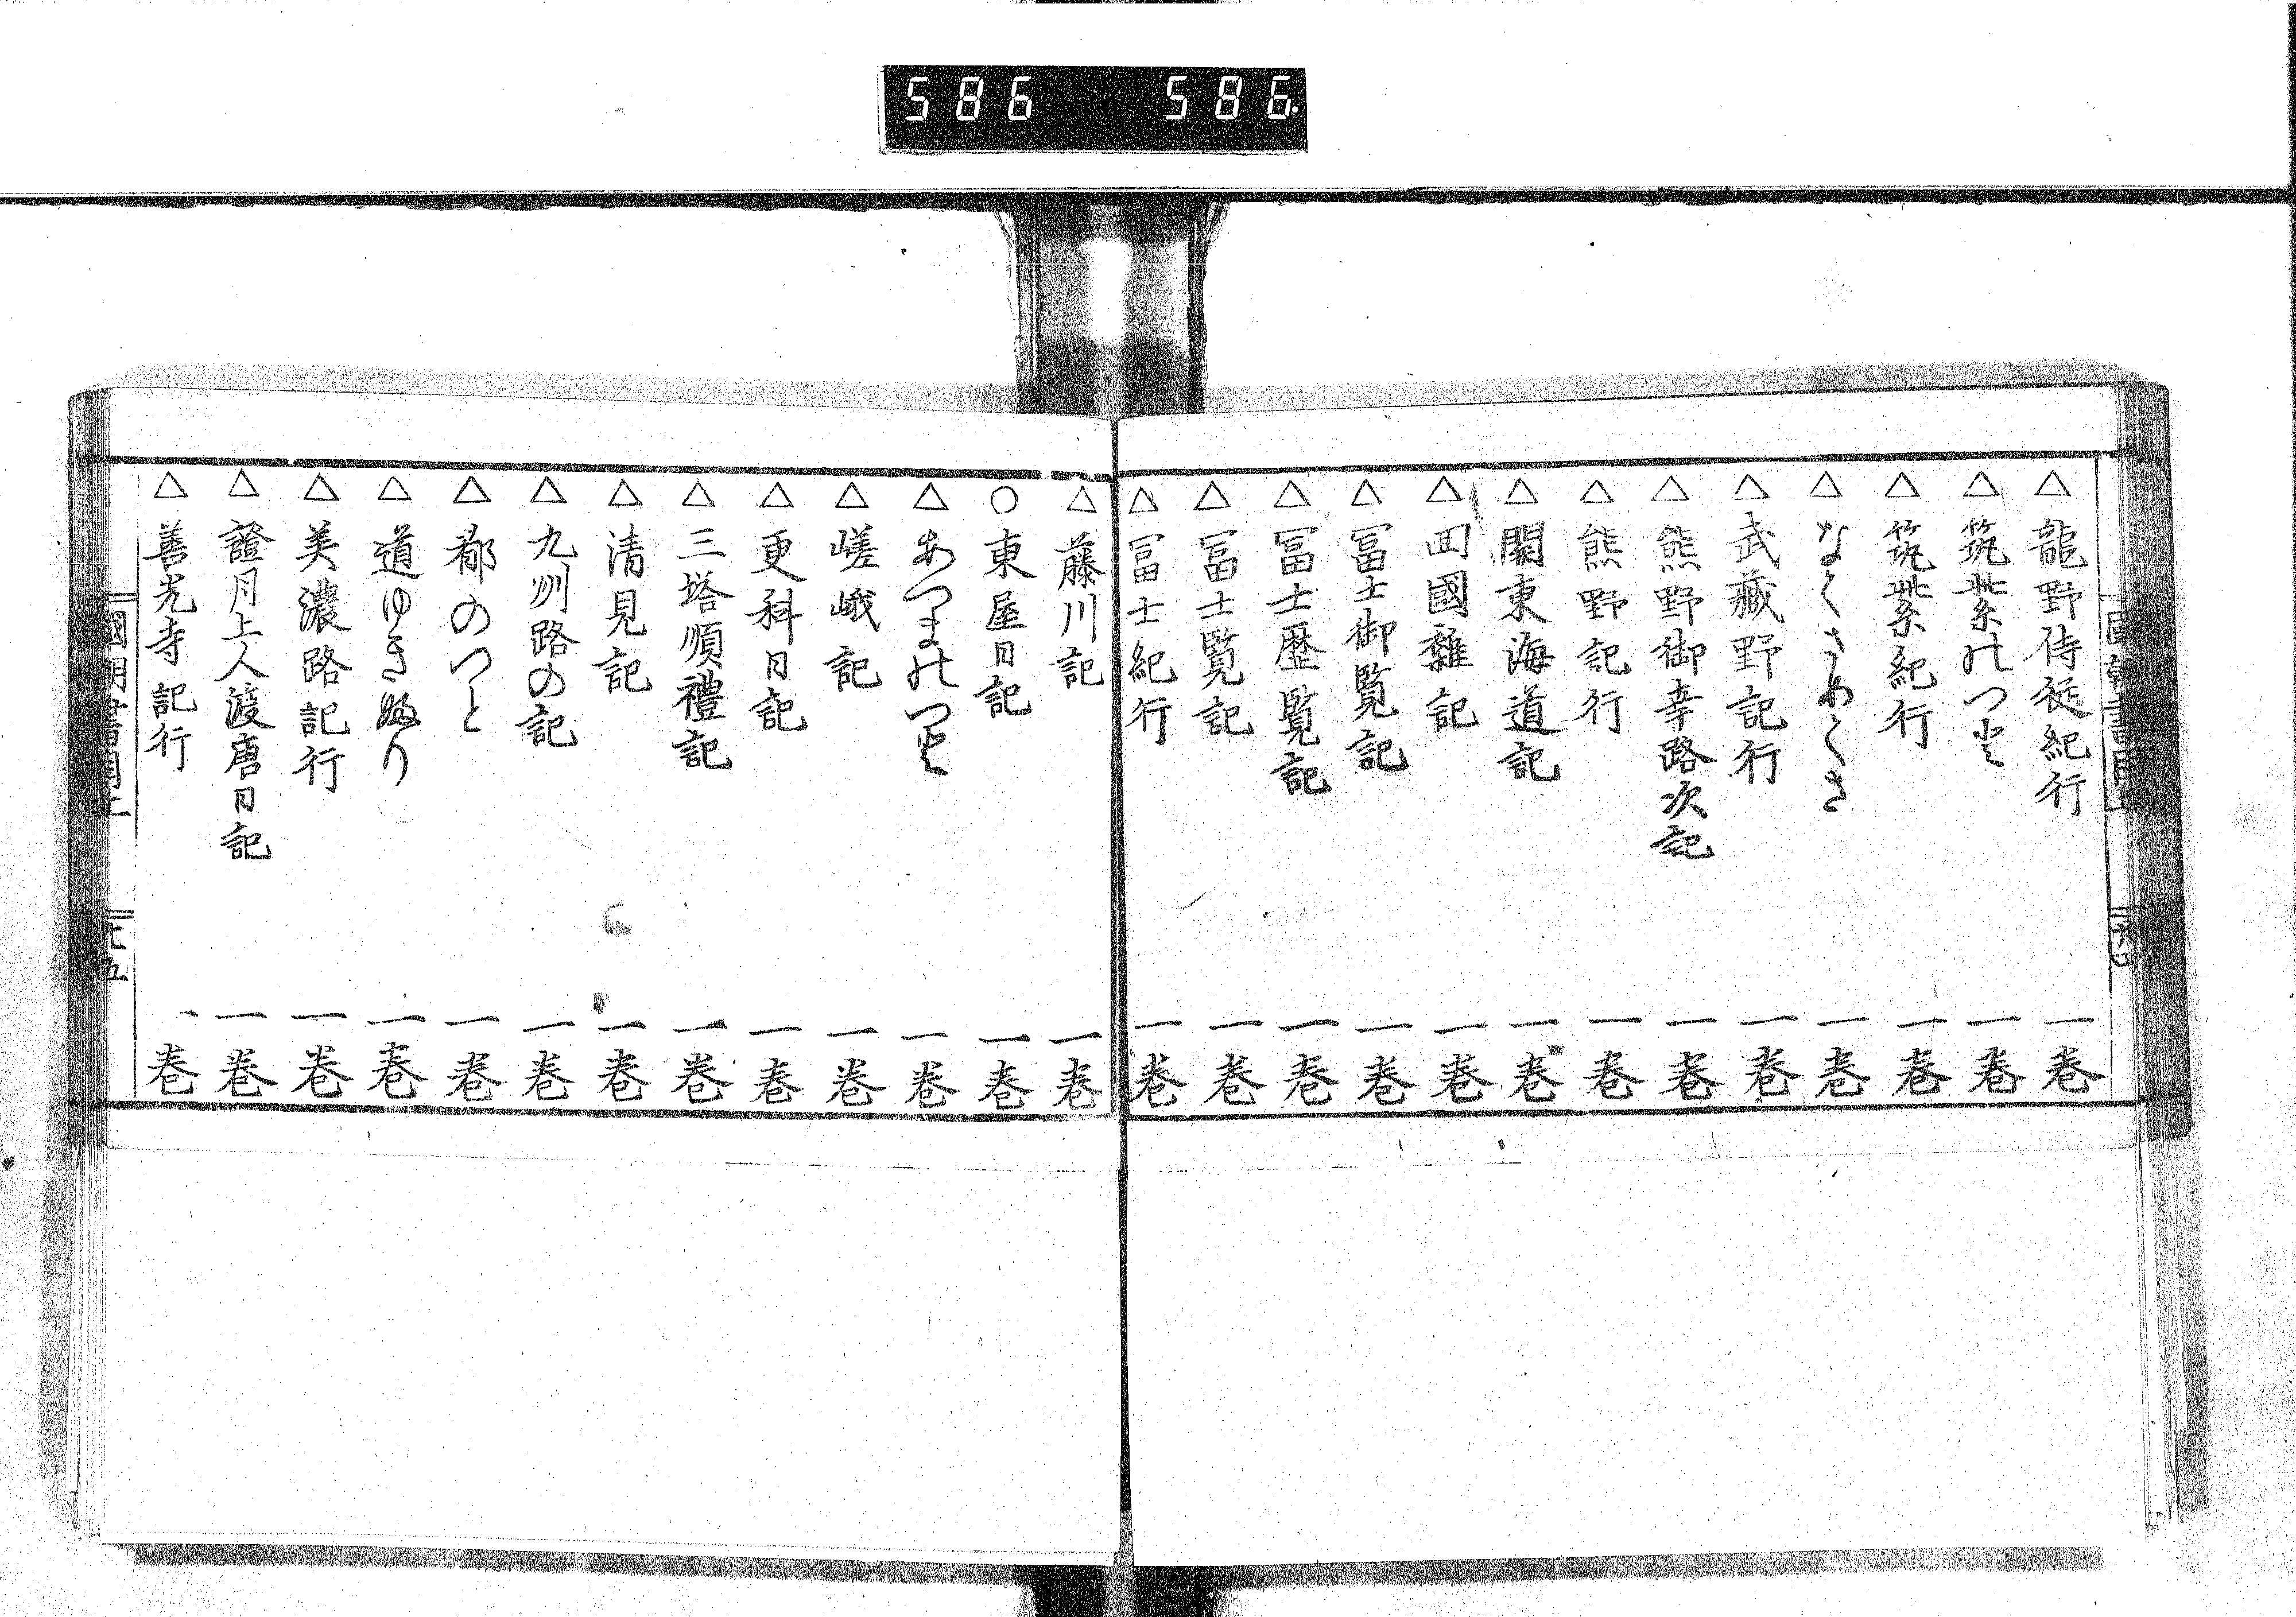 586 586
△龍野侍従紀行 一巻
△筑紫のつと 一巻
△筑紫紀行 一巻
△なくさめくさ 一巻
△武藏野記行 一巻
△熊野御幸路次記 一巻
△熊野記行 一巻
△關東海道記 一巻
△四國雜記 一巻
△冨士御覧記 一巻
△冨士歴覧記 一巻
△冨士覧記 一巻
△冨士紀行 一巻
△藤川記 一巻
○東屋日記 一巻
△あつまのつと 一巻
△嵯峨記 一巻
△更科日記 一巻
△三塔順禮記 一巻
△清見記 一巻
△九州路の記 一巻
△都のつと 一巻
△道ゆきぶり 一巻
△美濃路記行 一巻
△證月上人渡唐日記 一巻
△善光寺記行 一巻